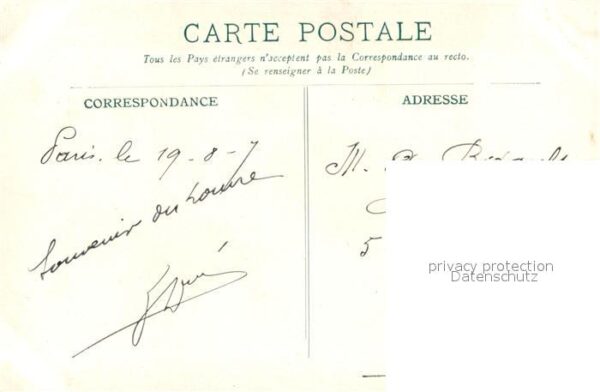 CARTE POSTALE
Tous les Pays étrangers n'acceptent pas la Correspondance au recto.
(Se renseigner à la Poste)
CORRESPONDANCE
Paris. le 19-8-7
Souvenir du Louvre
ADRESSE
M.
5
privacy protection
Datenschutz